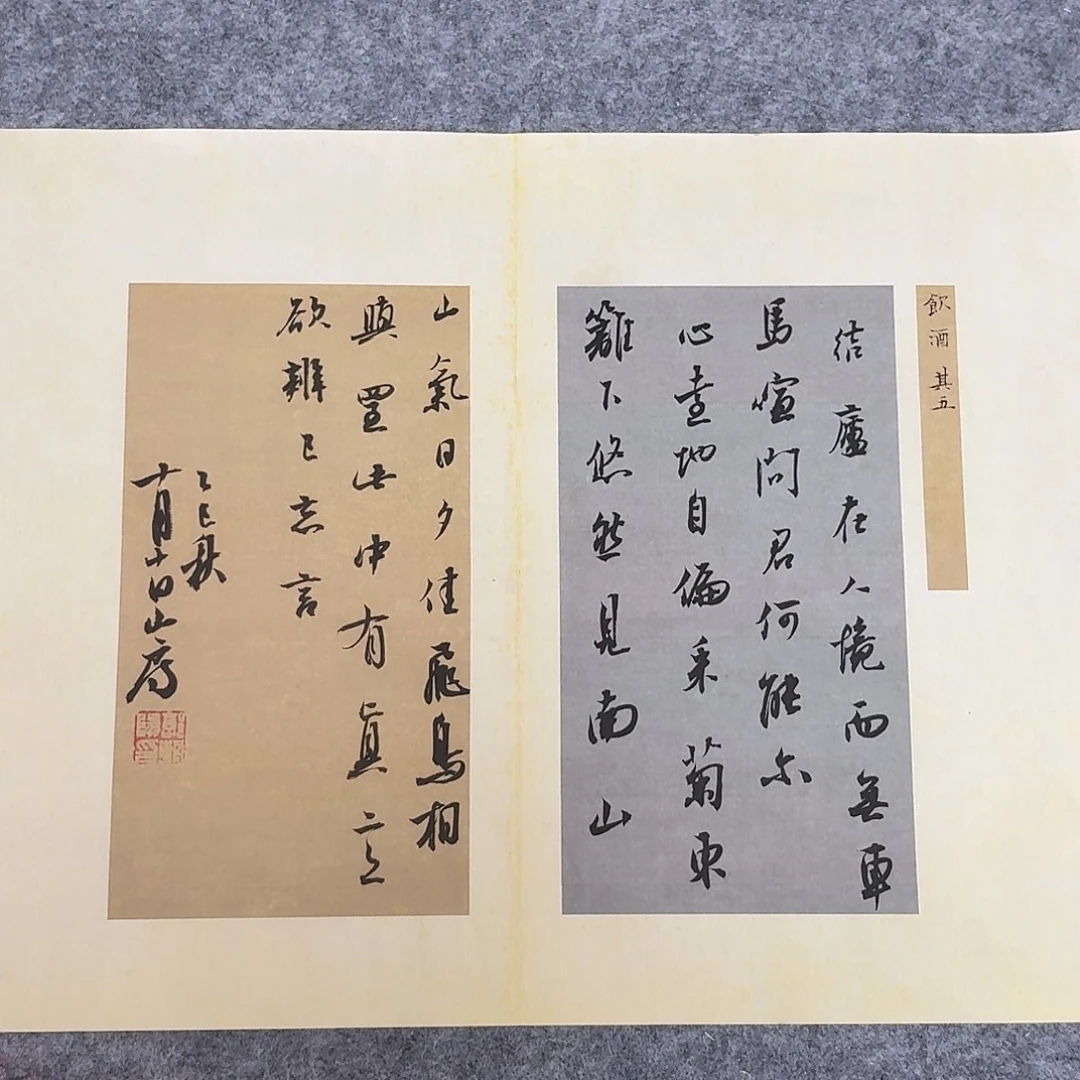 飲酒 其五
結廬在人境而無車
馬喧問君何能尔
心遠地自偏采菊東
籬下悠然見南山
山氣日夕佳飛鳥相
與還此中有真意
欲辨已忘言
乙巳秋
十月十日山房